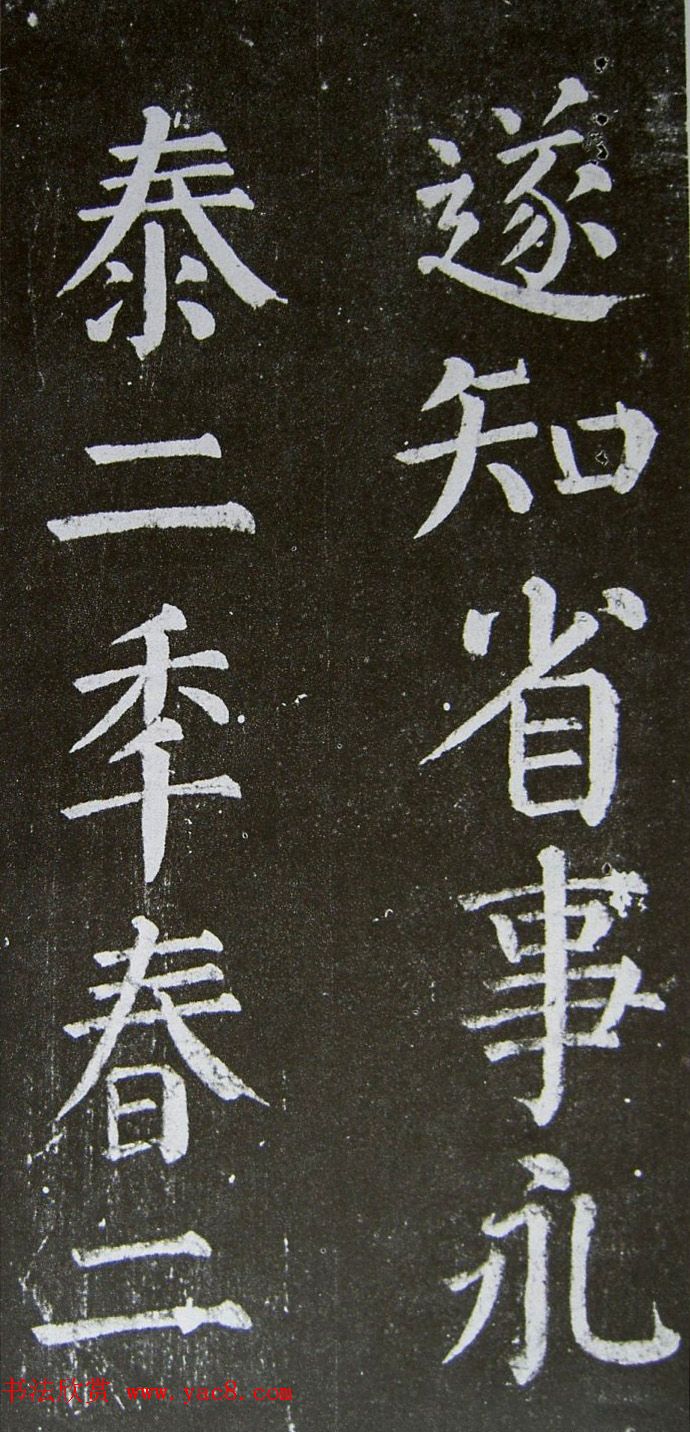 遂知省事永
泰二秊春二
书法欣赏 www.yac8.com